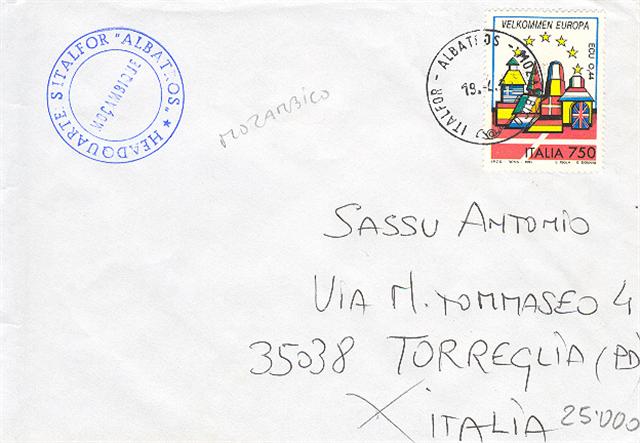 HEADQUARTERS ITALFOR "ALBATROS" ★
MOÇAMBIQUE
MOZAMBICO
ITALFOR - ALBATROS - MOZ
19.
VELKOMMEN EUROPA
ECU 0,44
ITALIA 750
SASSU ANTONIO
VIA M. TOMMASEO 4
35038 TORREGLIA (PD)
ITALIA 25'000